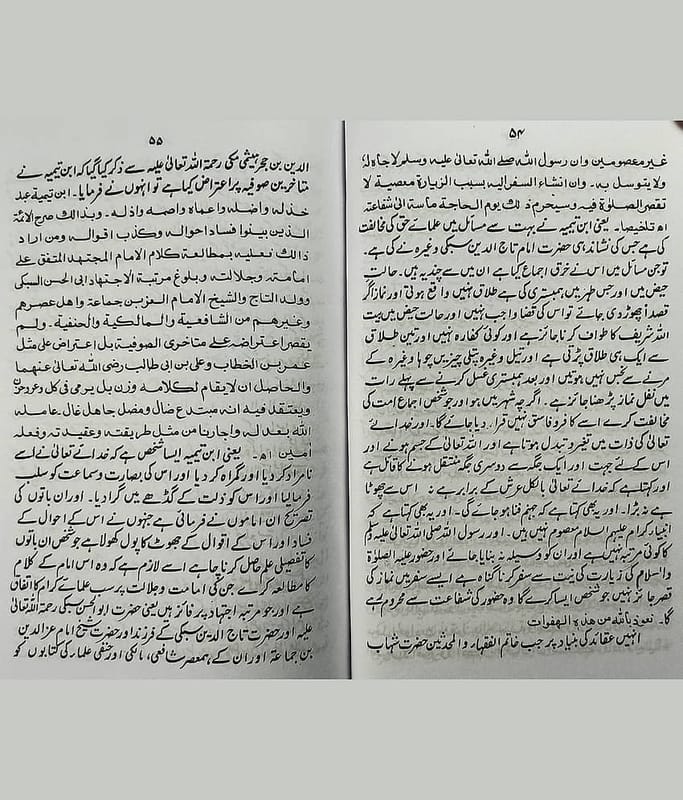 ۵۴
غیر معصومین وان رسول الله صلے الله تعالی علیه وسلم لا جاه له
ولا یتوسل به۔ وان انشاء السفر الیه بسبب الزیارة معصیة لا
تقصر الصلوة فیه وسیحرم ذلك یوم الحاجة ماسة الی شفاعته
اھ تلخیصا۔ یعنی ابن تیمیہ نے بہت سے مسائل میں علمائے حق کی مخالفت
کی ہے جس کی نشاندہی حضرت امام تاج الدین سبکی وغیرہ نے کی ہے۔
تو جن مسائل میں اس نے خرق اجماع کیا ہے ان میں سے چند یہ ہیں۔ حالت
حیض میں اور جس طہر میں ہمبستری کی ہے طلاق نہیں واقع ہوتی اور نماز اگر
قصداً چھوڑ دی جائے تو اس کی قضا واجب نہیں اور حالت حیض میں بیت
اللہ شریف کا طواف کرنا جائز ہے اور کوئی کفارہ نہیں اور تین طلاق
سے ایک ہی طلاق پڑتی ہے اور تیل وغیرہ پتلی چیزیں چوہا وغیرہ کے
مرنے سے نجس نہیں ہوتیں اور بعد ہمبستری غسل کرنے سے پہلے رات
میں نفل نماز پڑھنا جائز ہے۔ اگرچہ شہر میں ہو اور جو شخص اجماع امت کی
مخالفت کرے اسے کافر و فاسق نہیں قرار دیا جائے گا۔ اور خدائے
تعالیٰ کی ذات میں تغیر و تبدل ہوتا ہے اور اللہ تعالیٰ کے جسم ہونے اور
اس کے لئے جہت اور ایک جگہ سے دوسری جگہ منتقل ہونے کا قائل ہے
اور کہتا ہے کہ خدائے تعالیٰ بالکل عرش کے برابر ہے نہ اس سے چھوٹا
ہے نہ بڑا۔ اور یہ بھی کہتا ہے کہ جہنم فنا ہو جائے گی۔ اور یہ بھی کہتا ہے کہ
انبیاء کرام علیہم السلام معصوم نہیں ہیں۔ اور رسول اللہ صلی اللہ تعالیٰ علیہ وسلم
کا کوئی مرتبہ نہیں ہے اور ان کو وسیلہ نہ بنایا جائے اور حضور علیہ الصلوٰة
والسلام کی زیارت کی نیت سے سفر کرنا گناہ ہے ایسے سفر میں نماز کی
قصر جائز نہیں جو شخص ایسا کرے گا وہ حضور کی شفاعت سے محروم رہے
گا۔ نعوذ بالله من هذه الهفوات
انہیں عقائد کی بنیاد پر جب خاتم الفقہاء والمحدثین حضرت شہاب
۵۵
الدین بن حجر ہیثمی مکی رحمۃ اللہ تعالیٰ علیہ سے ذکر کیا گیا کہ ابن تیمیہ نے
متاخرین صوفیہ پر اعتراض کیا ہے تو انہوں نے فرمایا۔ ابن تیمیة عبد
خذله واضله واعماه واصمه واذله۔ وبذالك صرح الائمة
الذین بینوا فساد احواله وکذب اقواله ومن اراد
ذالك فعلیه بمطالعة کلام الامام المجتهد المتفق علی
امامته وجلالته وبلوغ مرتبة الاجتهاد ابی الحسن السبکی
وولده التاج والشیخ الامام العزبن جماعة واهل عصرهم
وغیرهم من الشافعیة والمالکیة والحنفیة۔ ولم
یقصر اعتراضه علے متاخری الصوفیة بل اعترض علی مثل
عمر بن الخطاب وعلی بن ابی طالب رضی الله تعالی عنهما
والحاصل ان لایقام لکلامه وزن بل یرمی فی کل وعر وحزن
ویعتقد فیه انه مبتدع ضال ومضل جاهل غال عامله
الله بعدله واجارنا من مثل طریقته وعقیدته وفعله
آمین اھ۔ یعنی ابن تیمیہ ایسا شخص ہے کہ خدائے تعالیٰ نے اسے
نامراد کر دیا اور گمراہ کر دیا اور اس کی بصارت و سماعت کو سلب
فرما لیا اور اس کو ذلت کے گڈھے میں گرا دیا۔ اور ان باتوں کی
تصریح ان اماموں نے فرمائی ہے جنہوں نے اس کے احوال کے
فساد اور اس کے اقوال کے جھوٹ کا پول کھولا ہے جو شخص ان باتوں
کا تفصیلی علم حاصل کرنا چاہے اسے لازم ہے کہ وہ اس امام کے کلام
کا مطالعہ کرے جن کی امامت و جلالت پر سب علمائے کرام کا اتفاق
ہے اور جو مرتبہ اجتہاد پر فائز ہیں یعنی حضرت ابو الحسن سبکی رحمۃ اللہ تعالیٰ
علیہ اور حضرت تاج الدین سبکی کے فرزند اور حضرت شیخ امام عز الدین
بن جماعۃ اور ان کے ہمعصر شافعی، مالکی اور حنفی علماء کی کتابوں کو